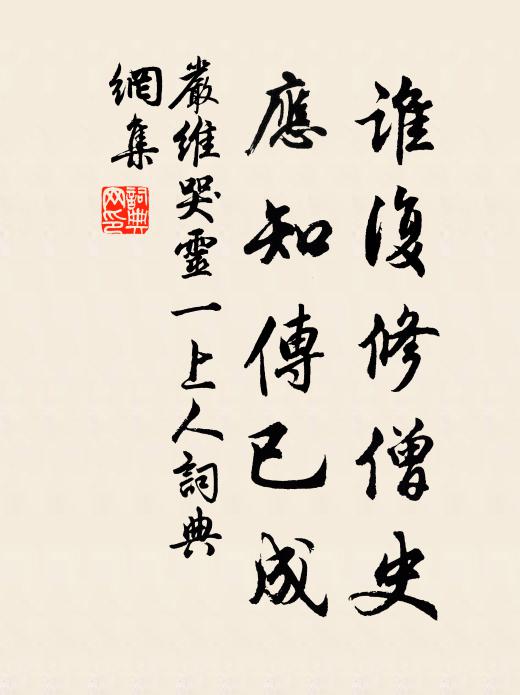 誰復修僧史
應知傳已成
嚴維哭靈一上人詞典
網集
詞典
网印